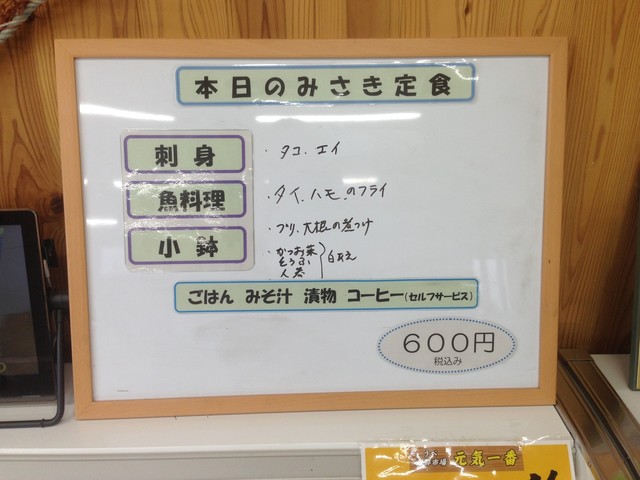 本日のみさき定食
刺身
・タコ、エイ
魚料理
・タイ、ハモ、のフライ
・ブリ、大根の煮つけ
小鉢
・かつお菜
とうふ
人参
白あえ
ごはん みそ汁 漬物 コーヒー(セルフサービス)
600円
税込み
市場 元気一番